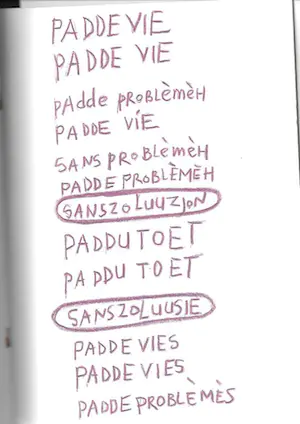 PADDE VIE
PADDE VIE
PAdde pRoBLÈMÈH
PADDE VÍE
SANS pROBLÈMÈH
PADDE PROBLÈMÈH
SANSZOLUUZJON
PADDU TOET
PADDU TOET
SANSZOLUUSIE
PADDE VIES
PADDE VIES
PADDE PROBLÈMÈS